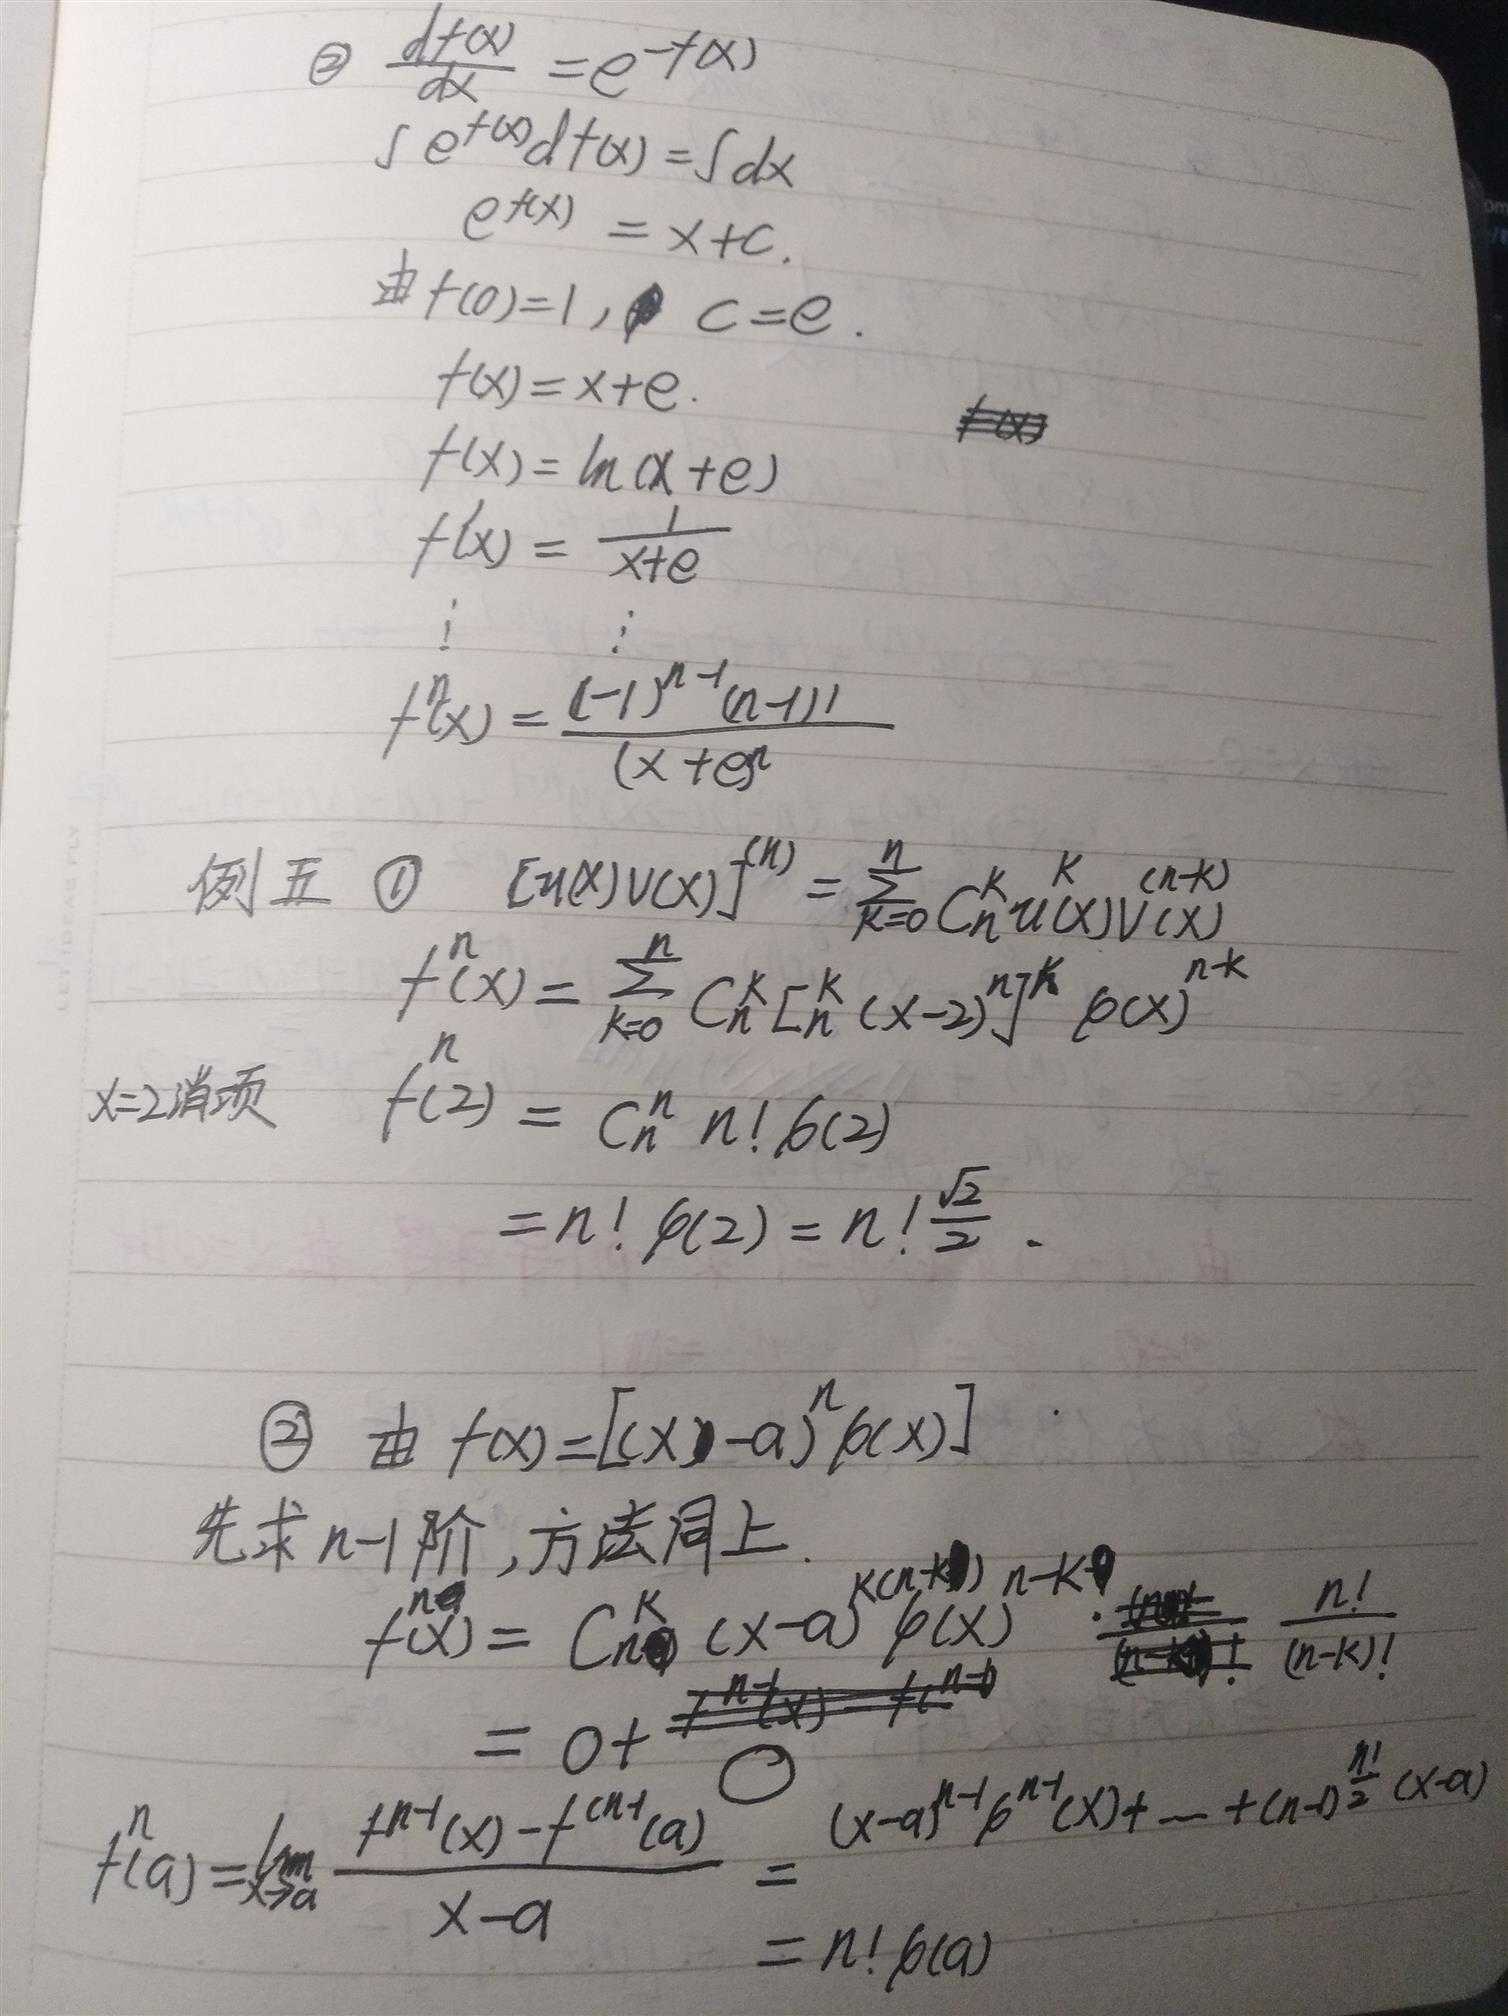 ② df(x)/dx = e^-f(x)
∫e^f(x) df(x) = ∫dx
e^f(x) = x+c.
由f(0)=1, c=e.
f(x)=x+e.
f(x)=ln(x+e)
f'(x) = 1/(x+e)
⋮ ⋮
f^n(x) = (-1)^n-1 (n-1)! / (x+e)^n
例五 ① [u(x)v(x)]^(n) = Σ_k=0^n C_n^k u^k(x) v^(n-k)(x)
f^n(x) = Σ_k=0^n C_n^k [_n^k (x-2)^n]^k φ(x)^n-k
x=2消项 f^n(2) = C_n^n n! φ(2)
= n! φ(2) = n! √2/2 .
② 由 f(x)=[(x-a)^n φ(x)]
先求n-1阶,方法同上.
= C_n^k (x-a) φ(x) · n!/(n-k)!
= 0+
f^n(a) = lim_x→a (f^n-1(x) - f^(n-1(a)) / (x-a) = (x-a)^n-1 φ^n-1(x) + … + (n-1) n!/2 (x-a)
= n! φ(a)